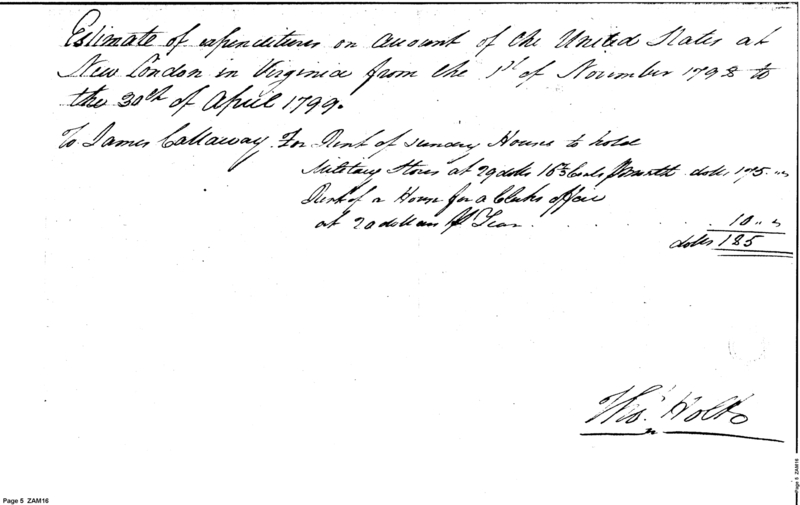 Estimate of expenditures on account of the United States at
New London in Virginia from the 1st of November 1798 to
the 30th of April 1799.
To James Callaway For Rent of sundry Houses to hold
Military Stores at 29 dolls 16⅔ Cents p month dolls 175 " "
Rent of a House for a Clerks office
at 20 dollars pr Year . . . . . . 10 " "
dolls 185
Thos. Holt
Page 5 ZAM16
Page 5 ZAM16